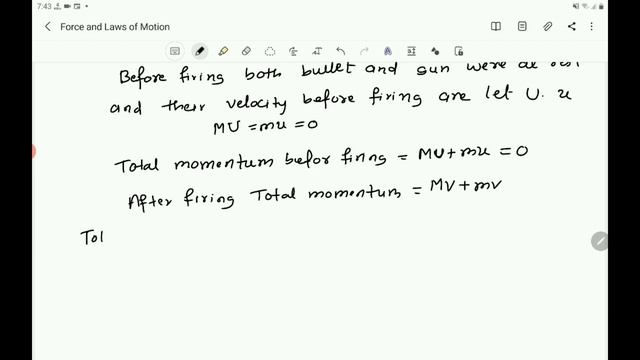 7:43
Force and Laws of Motion
Before firing both bullet and gun were at rest
and their velocity before firing are let U. u
MU = mu = 0
Total momentum befor firing = MU + mu = 0
After firing Total momentum = MV + mv
Tot